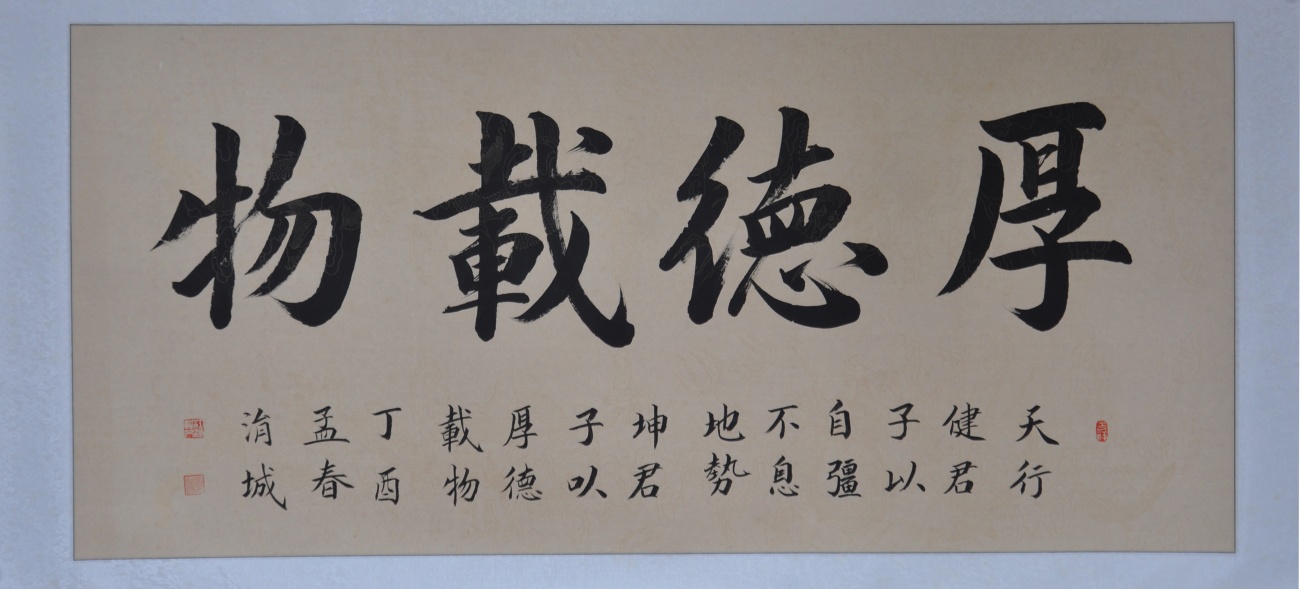 厚德載物
天行
健君
子以
自彊
不息
地勢
坤君
子以
厚德
載物
丁酉
孟春
涓城